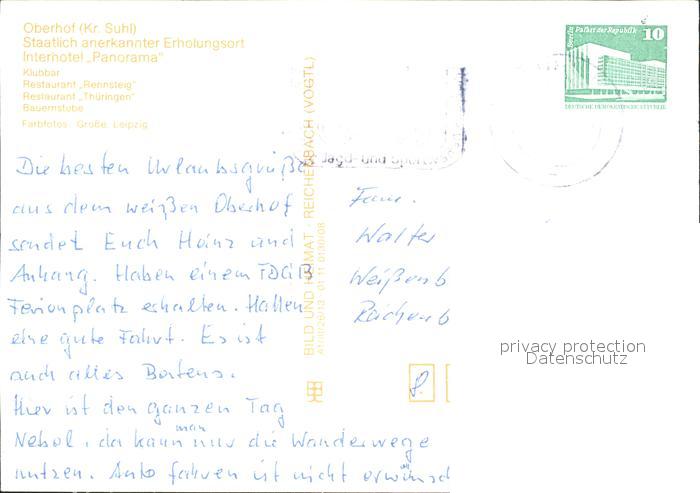 Oberhof (Kr. Suhl)
Staatlich anerkannter Erholungsort
Interhotel „Panorama"
Klubbar
Restaurant „Rennsteig"
Restaurant „Thüringen"
Bauernstube
Farbfotos: Große, Leipzig
Berlin Palast der Republik
10
DEUTSCHE DEMOKRATISCHE REPUBLIK
BILD UND HEIMAT · REICHENBACH (VOGTL)
Die besten Urlaubsgrüße
aus dem weißen Oberhof
sendet Euch Heinz und
Anhang. Haben einem FDGB
Ferienplatz erhalten. Hatten
eine gute Fahrt. Es ist
auch alles Bestens.
Hier ist den ganzen Tag
Nebel, da kann man nur die Wanderwege
nutzen. Auto fahren ist nicht erwünsc
Fam.
Walter
Weißenb
Reichenb
8.
privacy protection
Datenschutz